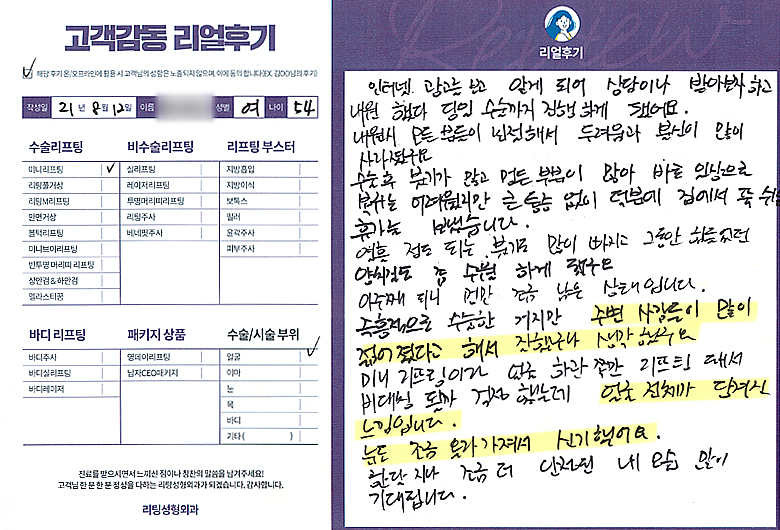 고객감동 리얼후기
해당 후기 온/오프라인에 활용 시 고객님의 성함은 노출되지 않으며, 이에 동의 합니다(EX. 김OO님의 후기)
작성일 21년 8월 12일 이름 성별 여 나이 54
수술리프팅
미니리프팅 ✓
리팅풀거상
리팅M리프팅
안면거상
볼턱리프팅
미니브이리프팅
반투명 머리띠 리프팅
상안검 & 하안검
엘라스티꿈
비수술리프팅
실리프팅
레이저리프팅
투명머리띠리프팅
리팅주사
베네핏주사
리프팅 부스터
지방흡입
지방이식
보톡스
필러
윤곽주사
피부주사
바디 리프팅
바디주사
바디실리프팅
바디레이저
패키지 상품
영데이리프팅
남자CEO패키지
수술/시술 부위
얼굴 ✓
이마
눈
목
바디
기타( )
진료를 받으시면서 느끼신 점이나 칭찬의 말씀을 남겨주세요!
고객님 한 분 한 분 정성을 다하는 리팅성형외과가 되겠습니다. 감사합니다.
리팅성형외과
Review
리얼후기
인터넷 광고를 보고 알게 되어 상담이나 받아보자 하고
내원 했다 당일 수술까지 진행하게 됐어요.
내원시 모든 분들이 친절해서 두려움과 불신이 많이
사라졌구요
수술 후 붓기가 많고 멍든 부분이 많아 바로 일상으로
복귀는 어려웠지만 큰 통증 없이 덕분에 집에서 푹 쉬는
휴가를 보냈습니다.
열흘 정도 되는 붓기도 많이 빠지고 그동안 힘들었던
양치질도 좀 수월 하게 됐구요
이주째 되니 멍만 조금 남은 상태입니다.
즉흥적으로 수술한 거지만 주변 사람들이 많이
젊어졌다고 해서 잘했구나 생각했구요
미니 리프팅이라 얼굴 하관 쪽만 리프팅 돼서
비대칭 될까 걱정 했는데 얼굴 전체가 당겨진
느낌입니다.
눈도 조금 올라가져서 신기했어요.
한달 지나 조금 더 안정된 내 모습 많이
기대됩니다.